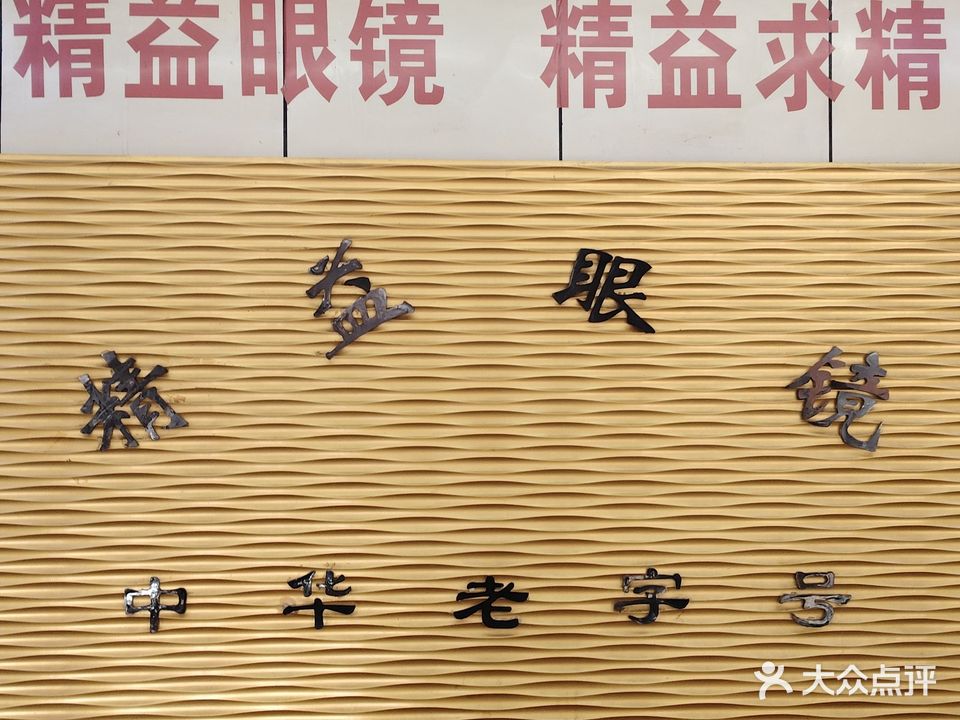 精益眼镜 精益求精
精益眼镜
中华老字号
大众点评